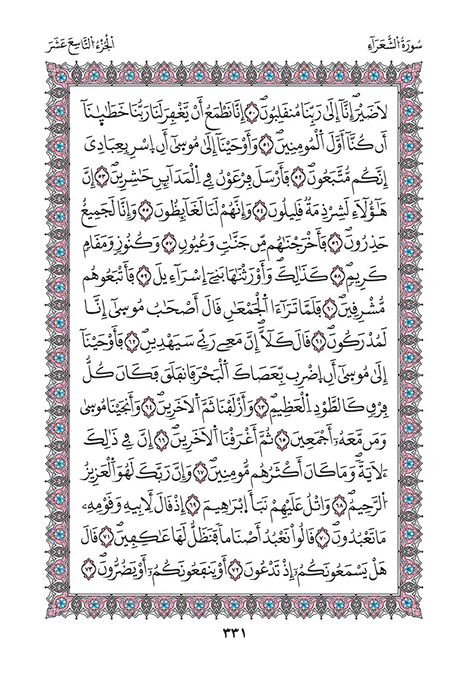 سُورَةُ الشُّعَرَآءِ
الجُزْءُ التَّاسِعَ عَشَرَ
لَا ضَيْرَ إِنَّآ إِلَىٰ رَبِّنَا مُنقَلِبُونَ ٥٠ إِنَّا نَطْمَعُ أَنْ يَّغْفِرَ لَنَا رَبُّنَا خَطَٰيَٰنَآ
أَن كُنَّآ أَوَّلَ اَلْمُومِنِينَ ٥١ وَأَوْحَيْنَآ إِلَىٰ مُوسَىٰٓ أَنِ اِسْرِ بِعِبَادِىَ
إِنَّكُم مُّتَّبَعُونَ ٥٢ فَأَرْسَلَ فِرْعَوْنُ فِي اِلْمَدَآئِنِ حَٰشِرِينَ ٥٣ إِنَّ
هَٰٓؤُلَآءِ لَشِرْذِمَةٌ قَلِيلُونَ ٥٤ وَإِنَّهُمْ لَنَا لَغَآئِظُونَ ٥٥ وَإِنَّا لَجَمِيعٌ
حَذِرُونَ ٥٦ فَأَخْرَجْنَٰهُم مِّن جَنَّٰتٍ وَعُيُونٍ ٥٧ وَكُنُوزٍ وَمَقَامٍ
كَرِيمٍ ٥٨ كَذَٰلِكَ وَأَوْرَثْنَٰهَا بَنِےٓ إِسْرَآءِيلَ ٥٩ فَأَتْبَعُوهُم
مُّشْرِقِينَ ٦٠ فَلَمَّا تَرَٰٓءَا اَلْجَمْعَٰنِ قَالَ أَصْحَٰبُ مُوسَىٰٓ إِنَّا
لَمُدْرَكُونَ ٦١ قَالَ كَلَّآ إِنَّ مَعِے رَبِّے سَيَهْدِينِ ٦٢ فَأَوْحَيْنَآ
إِلَىٰ مُوسَىٰٓ أَنِ اِضْرِب بِّعَصَاكَ اَلْبَحْرَ فَانفَلَقَ فَكَانَ كُلُّ
فِرْقٍ كَالطَّوْدِ اِلْعَظِيمِ ٦٣ وَأَزْلَفْنَا ثَمَّ اَلَاخَرِينَ ٦٤ وَأَنجَيْنَا مُوسَىٰ
وَمَن مَّعَهُۥٓ أَجْمَعِينَ ٦٥ ثُمَّ أَغْرَقْنَا اَلَاخَرِينَ ٦٦ إِنَّ فِے ذَٰلِكَ
ءَلَايَةً وَمَا كَانَ أَكْثَرُهُم مُّومِنِينَ ٦٧ وَإِنَّ رَبَّكَ لَهُوَ اَلْعَزِيزُ
اُلرَّحِيمُ ٦٨ وَاتْلُ عَلَيْهِمْ نَبَأَ اِبْرَٰهِيمَ ٦٩ إِذْ قَالَ لِأَبِيهِ وَقَوْمِهِۦ
مَا تَعْبُدُونَ ٧٠ قَالُواْ نَعْبُدُ أَصْنَاماً فَنَظَلُّ لَهَا عَٰكِفِينَ ٧١ قَالَ
هَلْ يَسْمَعُونَكُمُۥٓ إِذْ تَدْعُونَ ٧٢ أَوْ يَنفَعُونَكُمُۥٓ أَوْ يَضُرُّونَ ٧٣
٣٣١